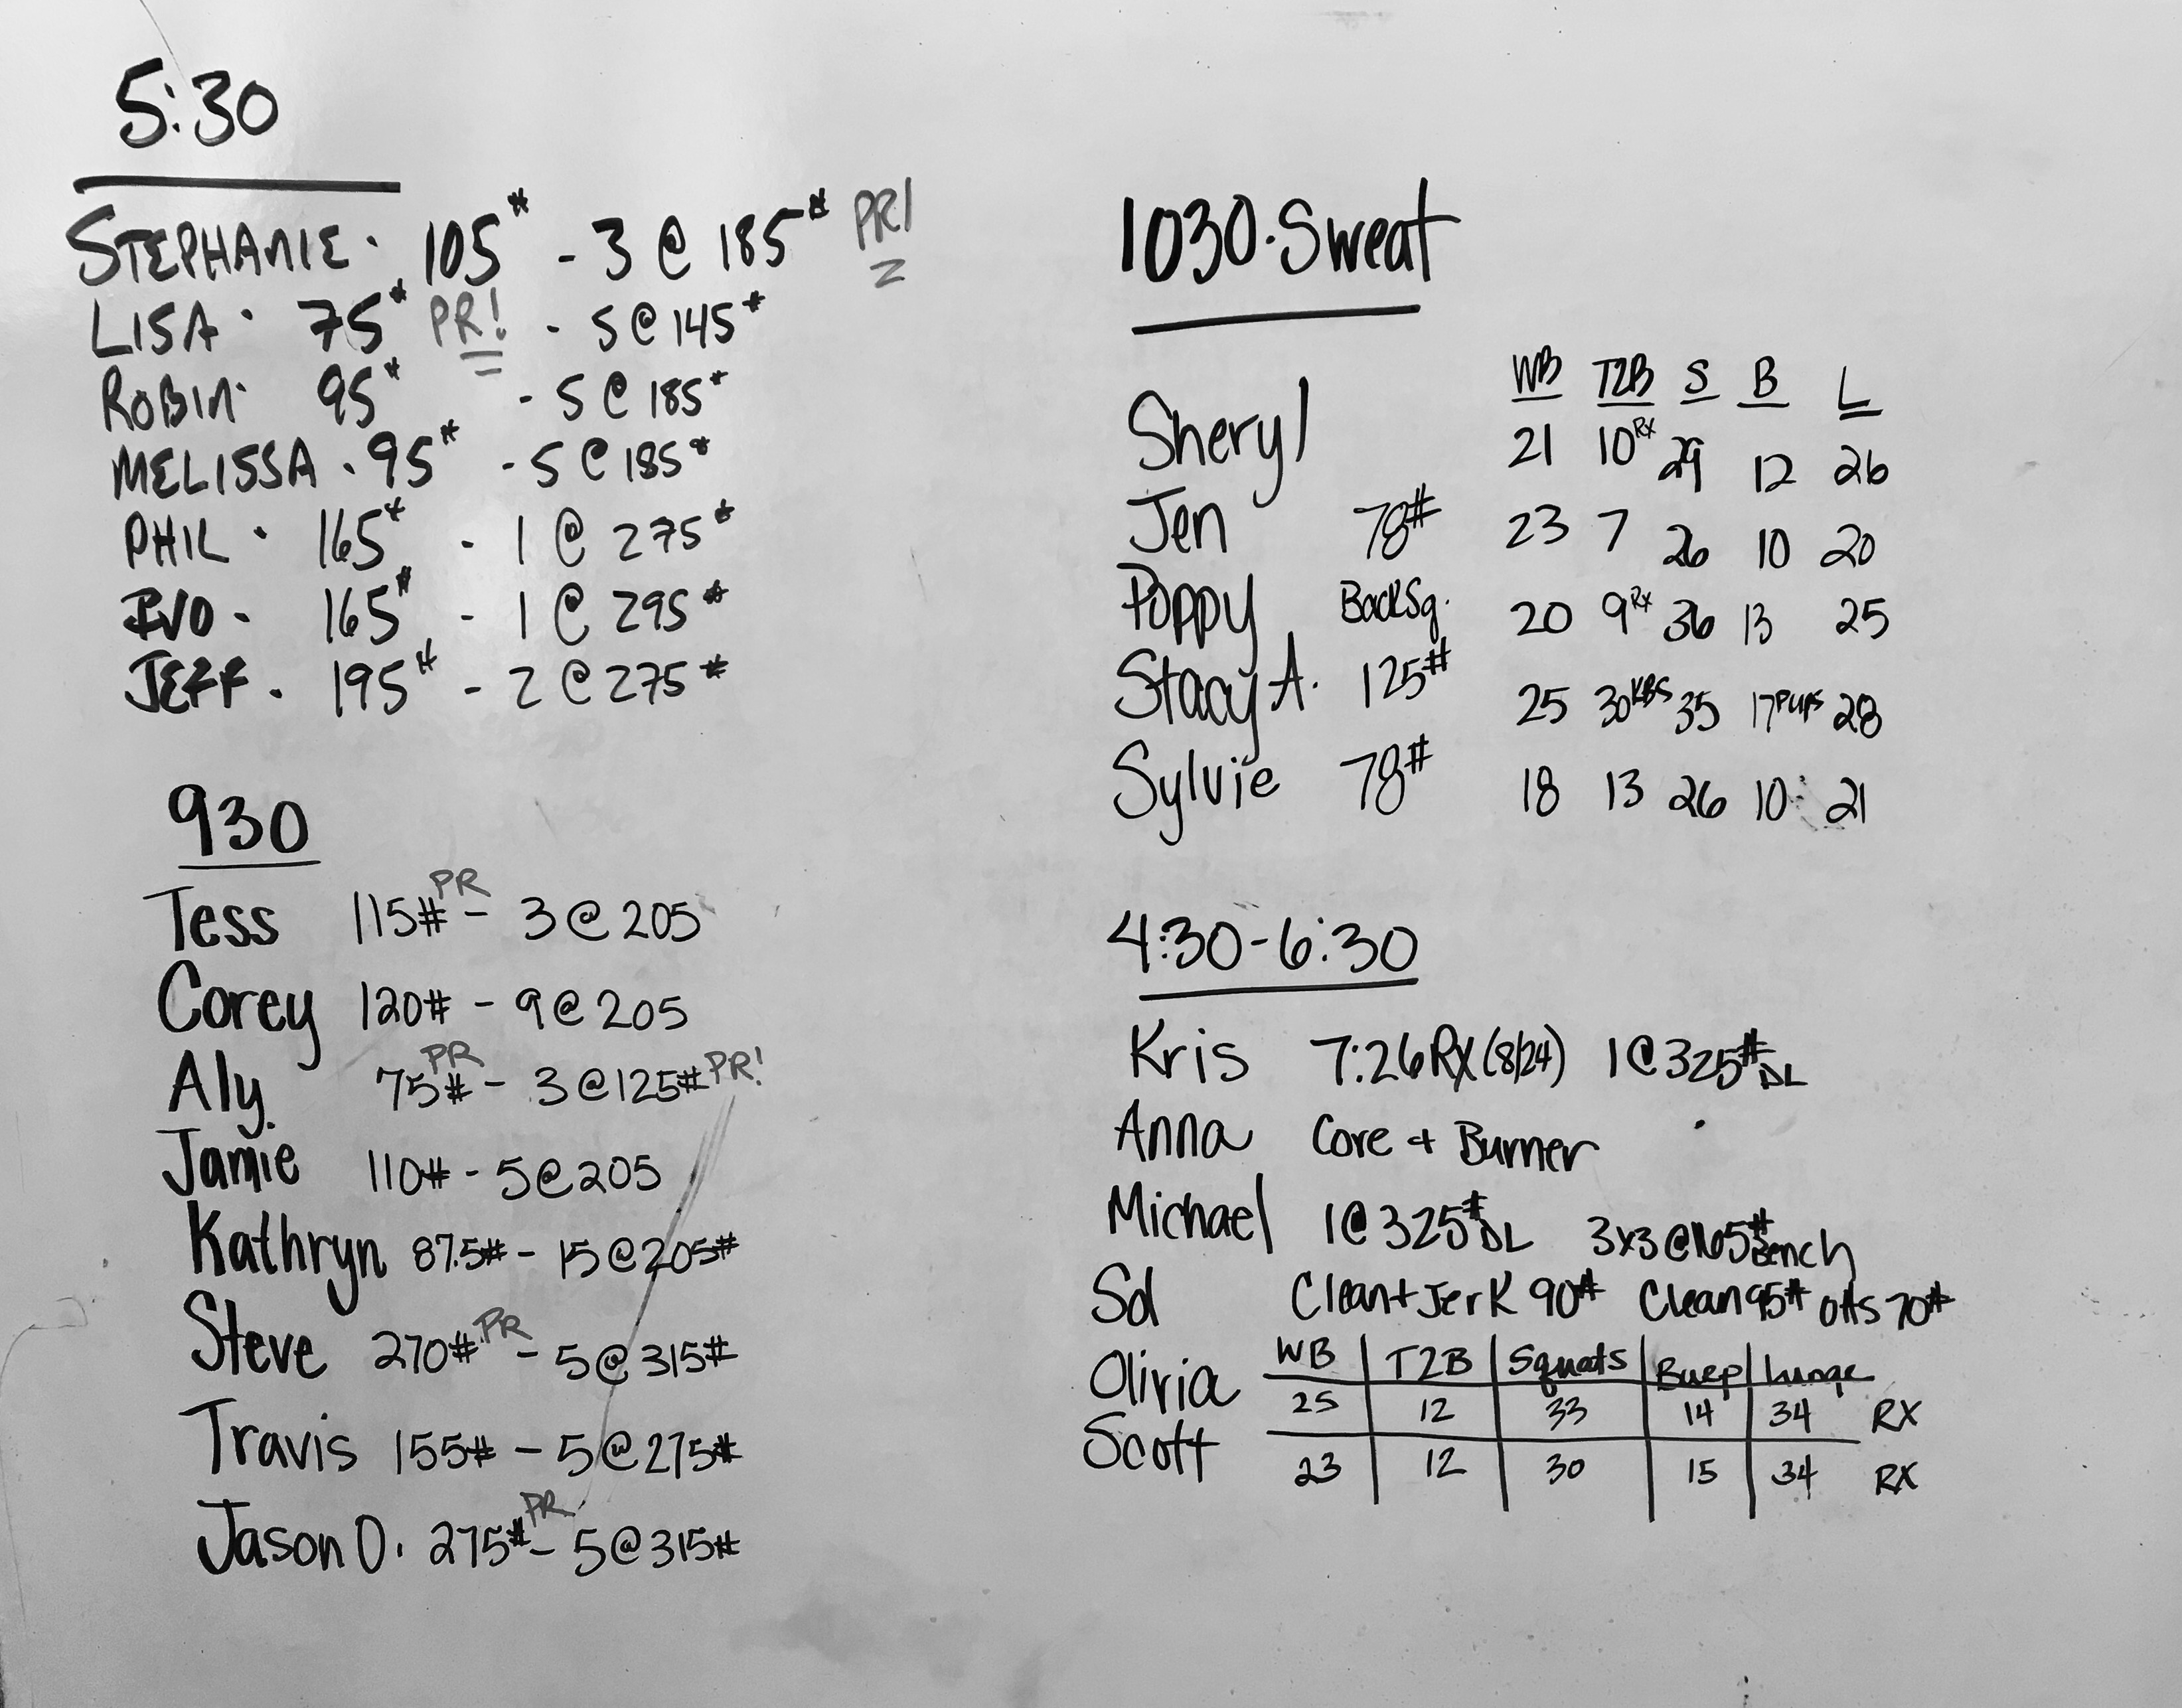 5:30
STEPHANIE · 105# - 3 @ 185# PR!
LISA · 75# PR! - 5 @ 145#
ROBIN · 95# - 5 @ 185#
MELISSA · 95# - 5 @ 185#
PHIL · 165# - 1 @ 275#
IVO - 165# - 1 @ 295#
JEFF - 195# - 2 @ 275#
930
Tess 115# PR - 3 @ 205
Corey 120# - 9 @ 205
Aly 75# PR - 3 @ 125# PR!
Jamie 110# - 5 @ 205
Kathryn 87.5# - 15 @ 205#
Steve 270# PR - 5 @ 315#
Travis 155# - 5 @ 275#
Jason O. 275# PR - 5 @ 315#
1030 · Sweat
WB T2B S B L
Sheryl 21 10 RX 29 12 26
Jen 78# 23 7 26 10 20
Poppy BackSq. 20 9 RX 36 13 25
Stacy A. 125# 25 30 KBS 35 17 PUPS 28
Sylvie 78# 18 13 26 10 21
4:30-6:30
Kris 7:26 RX (8/24) 1 @ 325# DL
Anna Core + Burner
Michael 1 @ 325# DL 3x3 @ 165# Bench
Sol Clean + Jerk 90# Clean 95# 70#
WB T2B Squats Burp Lunge
Olivia 25 12 33 14 34 RX
Scott 23 12 30 15 34 RX